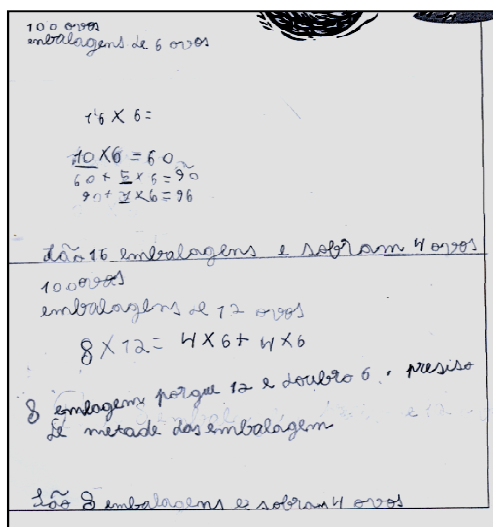 100 ovos
embalagens de 6 ovos
16 X 6 =
10 X 6 = 60
60 + 5 x 6 = 90
90 + 1 X 6 = 96
São 16 embalagens e sobram 4 ovos
100 ovos
embalagens de 12 ovos
8 X 12 = 4 X 6 + 4 X 6
8 emlagem porque 12 e doubro 6. presiso
de metade das embalagem
São 8 embalagens e sobram 4 ovos